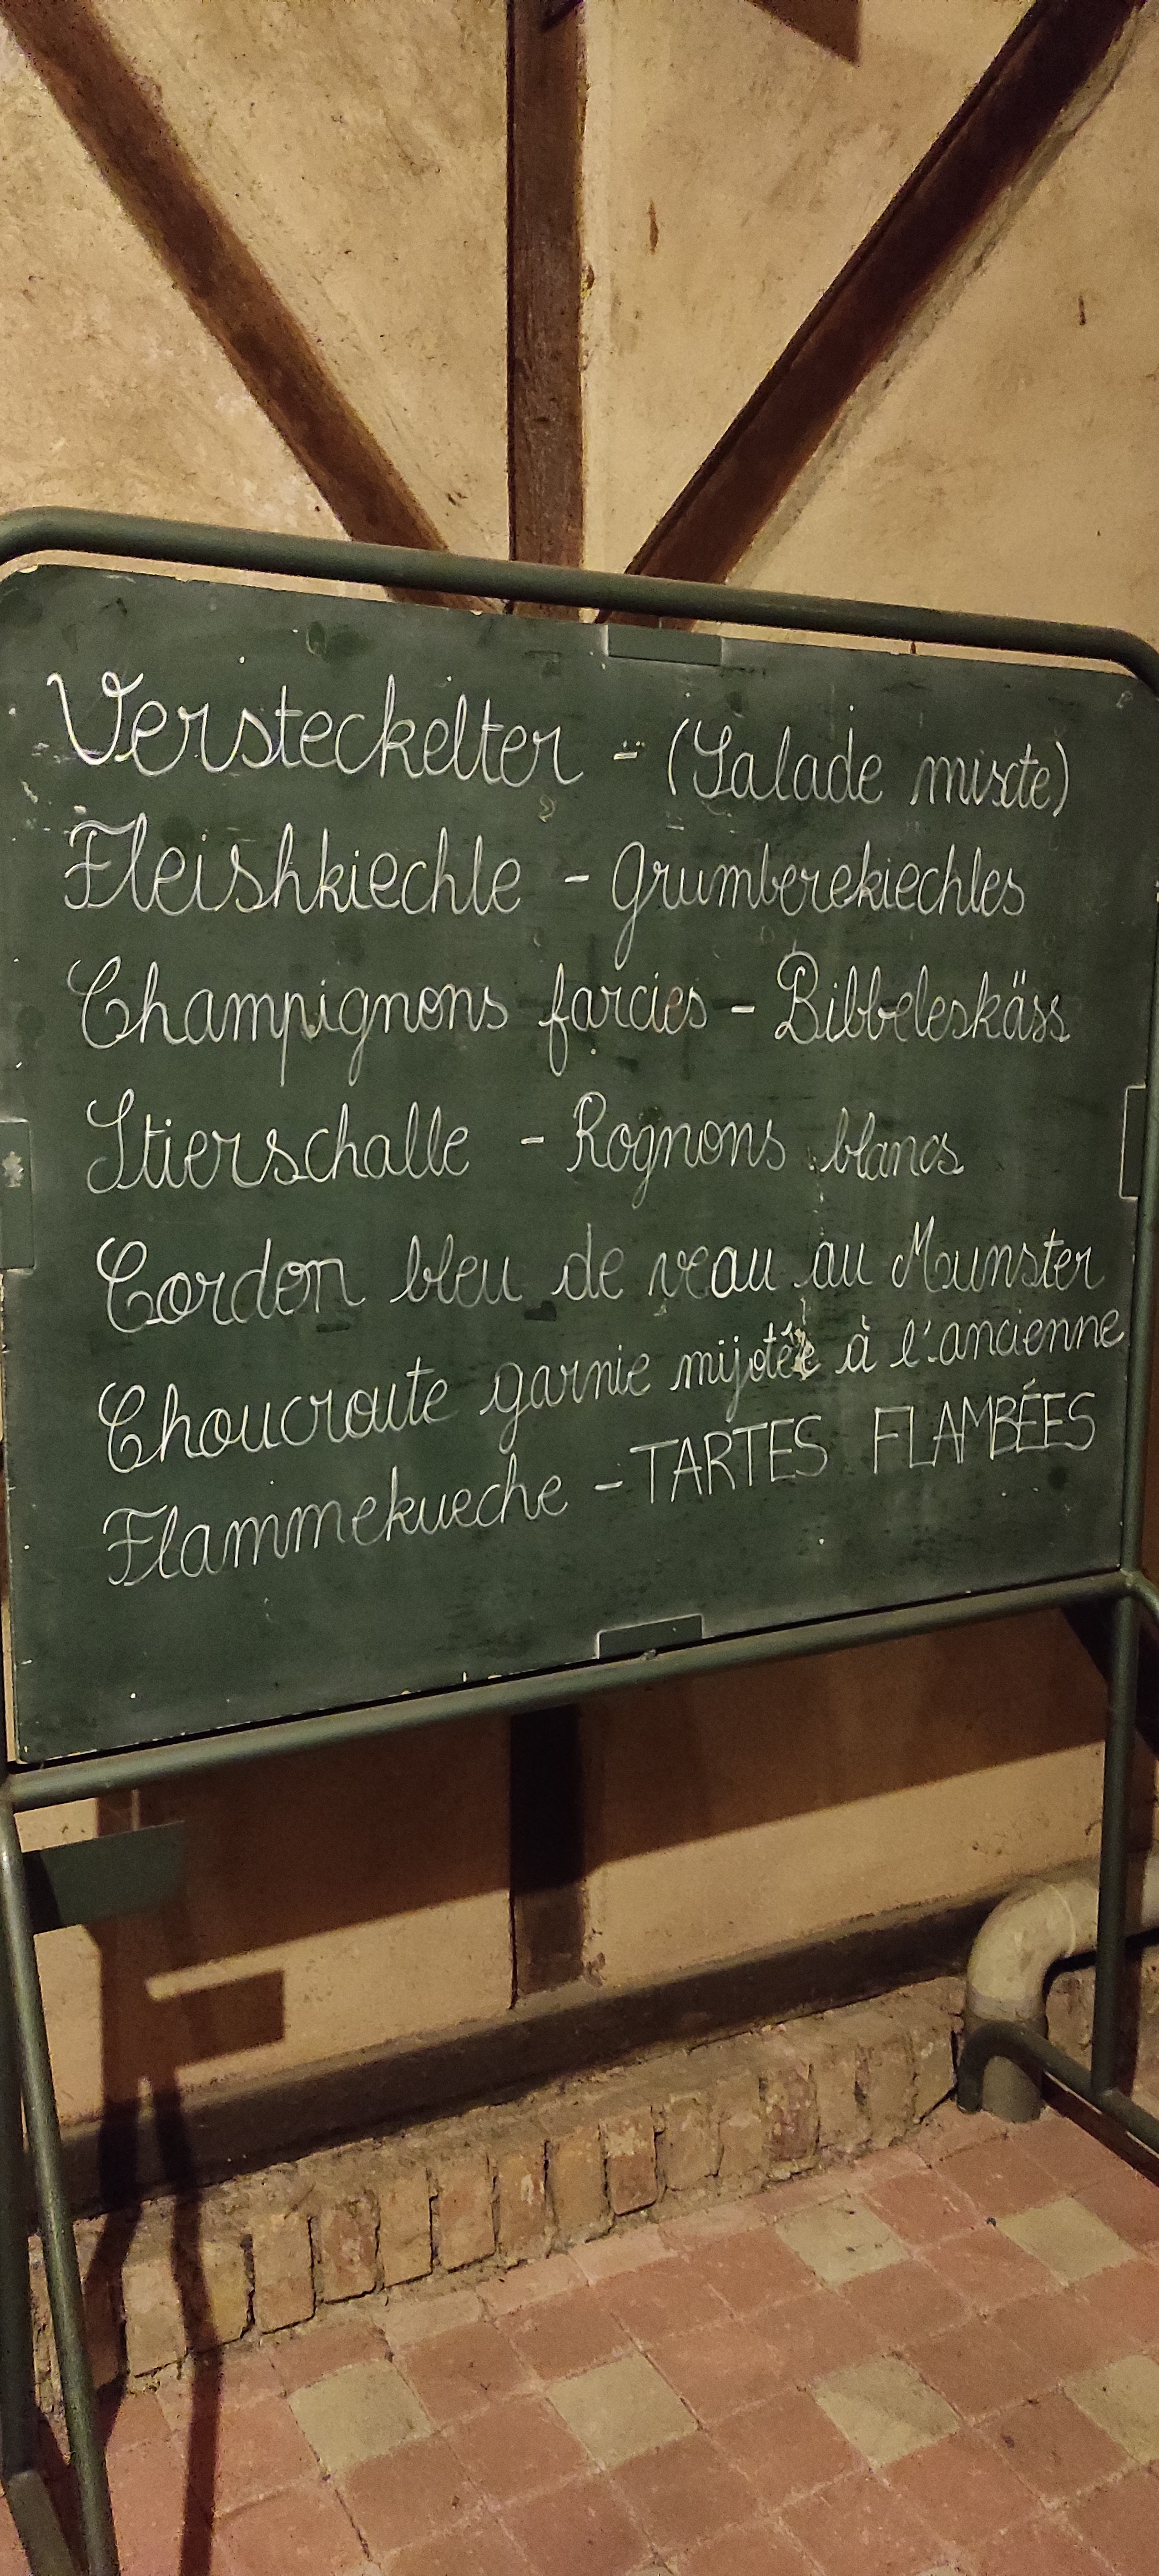 Versteckelter - (Salade mixte)
Fleishkiechle - Grumberekiechles
Champignons farcies - Bibbeleskäss
Stierschalle - Rognons blancs
Cordon bleu de veau au Munster
Choucroute garnie mijotée à l'ancienne
Flammekueche - TARTES FLAMBÉES